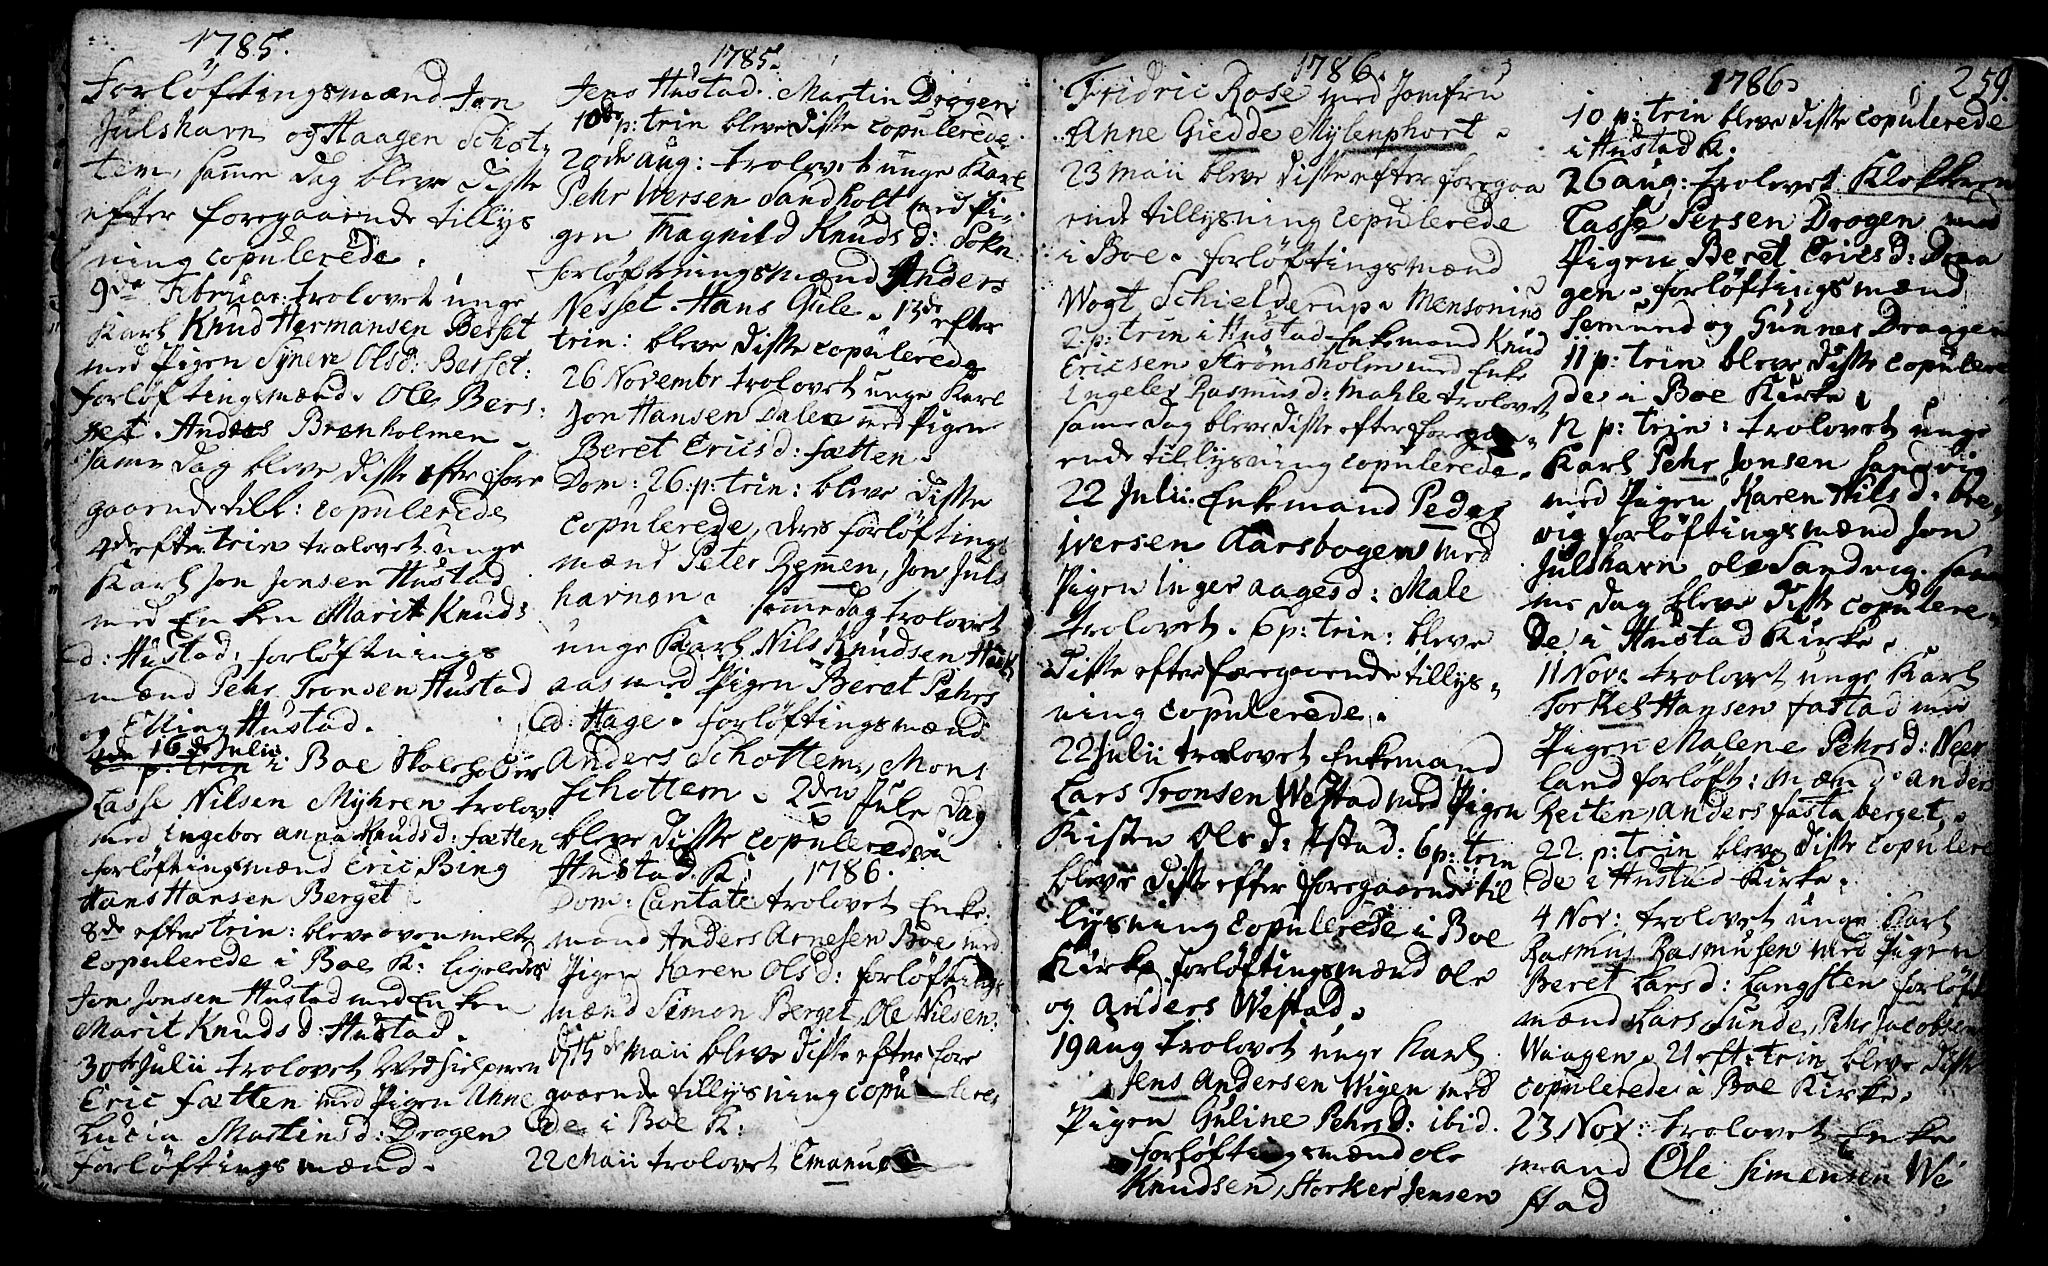 1785.
Forlöftingsmænd Jon
Julshavn og Haagen Schot,,
tem, samme dag bleve disse
efter foregaaende tillys
ning copulerede.
9de Februar: trolovet unge
Karl Knud Hermansen Berset
med Pigen Syneve Olsd: Berset:
forlöftingsmænd. Ole Bers:
set. Anders Brenholmen.
samme dag bleve disse efter fore
gaaende till: copulerede
4de efter trin trolovet unge
Karl Jon Jonsen Hustad
med Enken Marit Knuds
d: Hustad, forlöftnings
mænd Pehr Tronsen Hustad
og Elling Hustad.
16de Julii
p: trin i Boe Skoleholder
Lasse Nilsen Myhren trolov
med ingebor anna Knudsd: fætten
forlöftingsmænd Eric Bing
Hans Hansen Berget
8de efter trin: bleve ovenmelte
copulerede i Boe K: ligeledes
Jon Jonsen Hustad med Enken
Marit Knudsd: Hustad.
30de Julii trolovet Medhielperen
Eric fætten med Pigen Anne
Lucia Martinsd: Drogen
forlöftingsmænd.
1785.
Jens Hustad. Martin Drogen
10de p: trin bleve disse copulerede
20de aug: trolovet unge Karl
Pehr Iversen Sandholt med Pi,,
gen Magnild Knudsd: Sokn:
forlöftningsmænd Anders
Nesset. Hans Gule. 13de efter
trin: bleve disse copulerede
26 Novembr trolovet unge Karl
Jon Hansen Dalen med Pigen
Beret Ericsd: fætten.
Dom: 26:p: trin: bleve disse
copulerede, deres forlöftings
mænd Peter Remmen, Jon Juls
havnen. samme dag trolovet
unge Karl Nils Knudsen
aas med Pigen Beret Pehrs
d: Hage. forlöftingsmænd
Anders Schottem, Mons
Schottem. 2den Jule dag
bleve disse copulerede i
Hustad K: 1786.
Dom: Cantate trolovet Enke
mand Anders Arnesen Boe med
Pigen Karen Olsd: forlöftings
mænd Simon Berget, Ole Nilsen.
15de Maii bleve disse efter fore
gaaende tillysning copulere,
de i Boe K:
22 Maii trolovet Emanuel
1786.
Fridric Rose med Jomfru
Anne Giedde Mylenphort.
23 Maii bleve disse efter foregaa
ende tillysning copulerede
i Boe. forlöftingsmænd
Wogt Schielderup. Mensonius
2.p: trin i Hustad Enkemand Knud
Ericsen Strömsholm med Enke
Ingeleg Rasmusd: Mahle trolovet
samme dag bleve disse efter foregaa,,
ende tillysning copulerede.
22 Julii Enkemand Peder
Iversen Aarsbogen med
Pigen Inger aagesd: Male
trolovet. 6 p: trin: bleve
disse efter foregaaende tillys,,
ning copulerede.
22 Julii trolovet Enkemand
Lars Tronsen Westad med Pigen
Kisten Olsd: Istad: 6p: trin
bleve disse efter foregaaende til
lysning copulerede i Boe
Kirke forlöftingsmænd ole
og anders Westad.
19 aug trolovet unge Karl
Jens Andersen Wigen med
Pigen Guline Pehrsd: ibid.
forlöftingsmænd ole
Knudsen, Storker Jensen
1786. 259.
10 p: trin bleve disse copulerede
i Hustad K.
26 aug: trolovet Klokkeren
Lasse Persen Drogen med
Pigen Beret Ericsd: Draa
gen. forlöftingsmænd
Semund og Gunner Draggen
11 p: trin bleve disse copulere
de i Boe Kirke.
12 p: trin: trolovet unge
Karl Pehr Jonsen Sandvig
med Pigen Karen Nilsd: bre,,
vig forlöftingsmænd Jon
Julshavn ole Sandvig. sam
me dag bleve disse copulere,,
de i Hustad Kirke.
11 Nov: trolovet unge Karl
Torkel Hansen fastad med
Pigen Malene Pehrsd: Neer
land forlöft: mænd: anders
Reiten, Anders fastaberget.
22. p: trin bleve disse copulere
de i Hustad Kirke.
4 Nov: trolovet unge Karl
Rasmus Rasmusen med Pigen
Beret Larsd: Langsten forlöft
mænd Lars Sunde, Pehr Jacobsen
Waagen. 21 eft: trin bleve disse
copulerede i Boe Kirke.
23 Nov: trolovet Enke
mand Ole Simensen We
stad